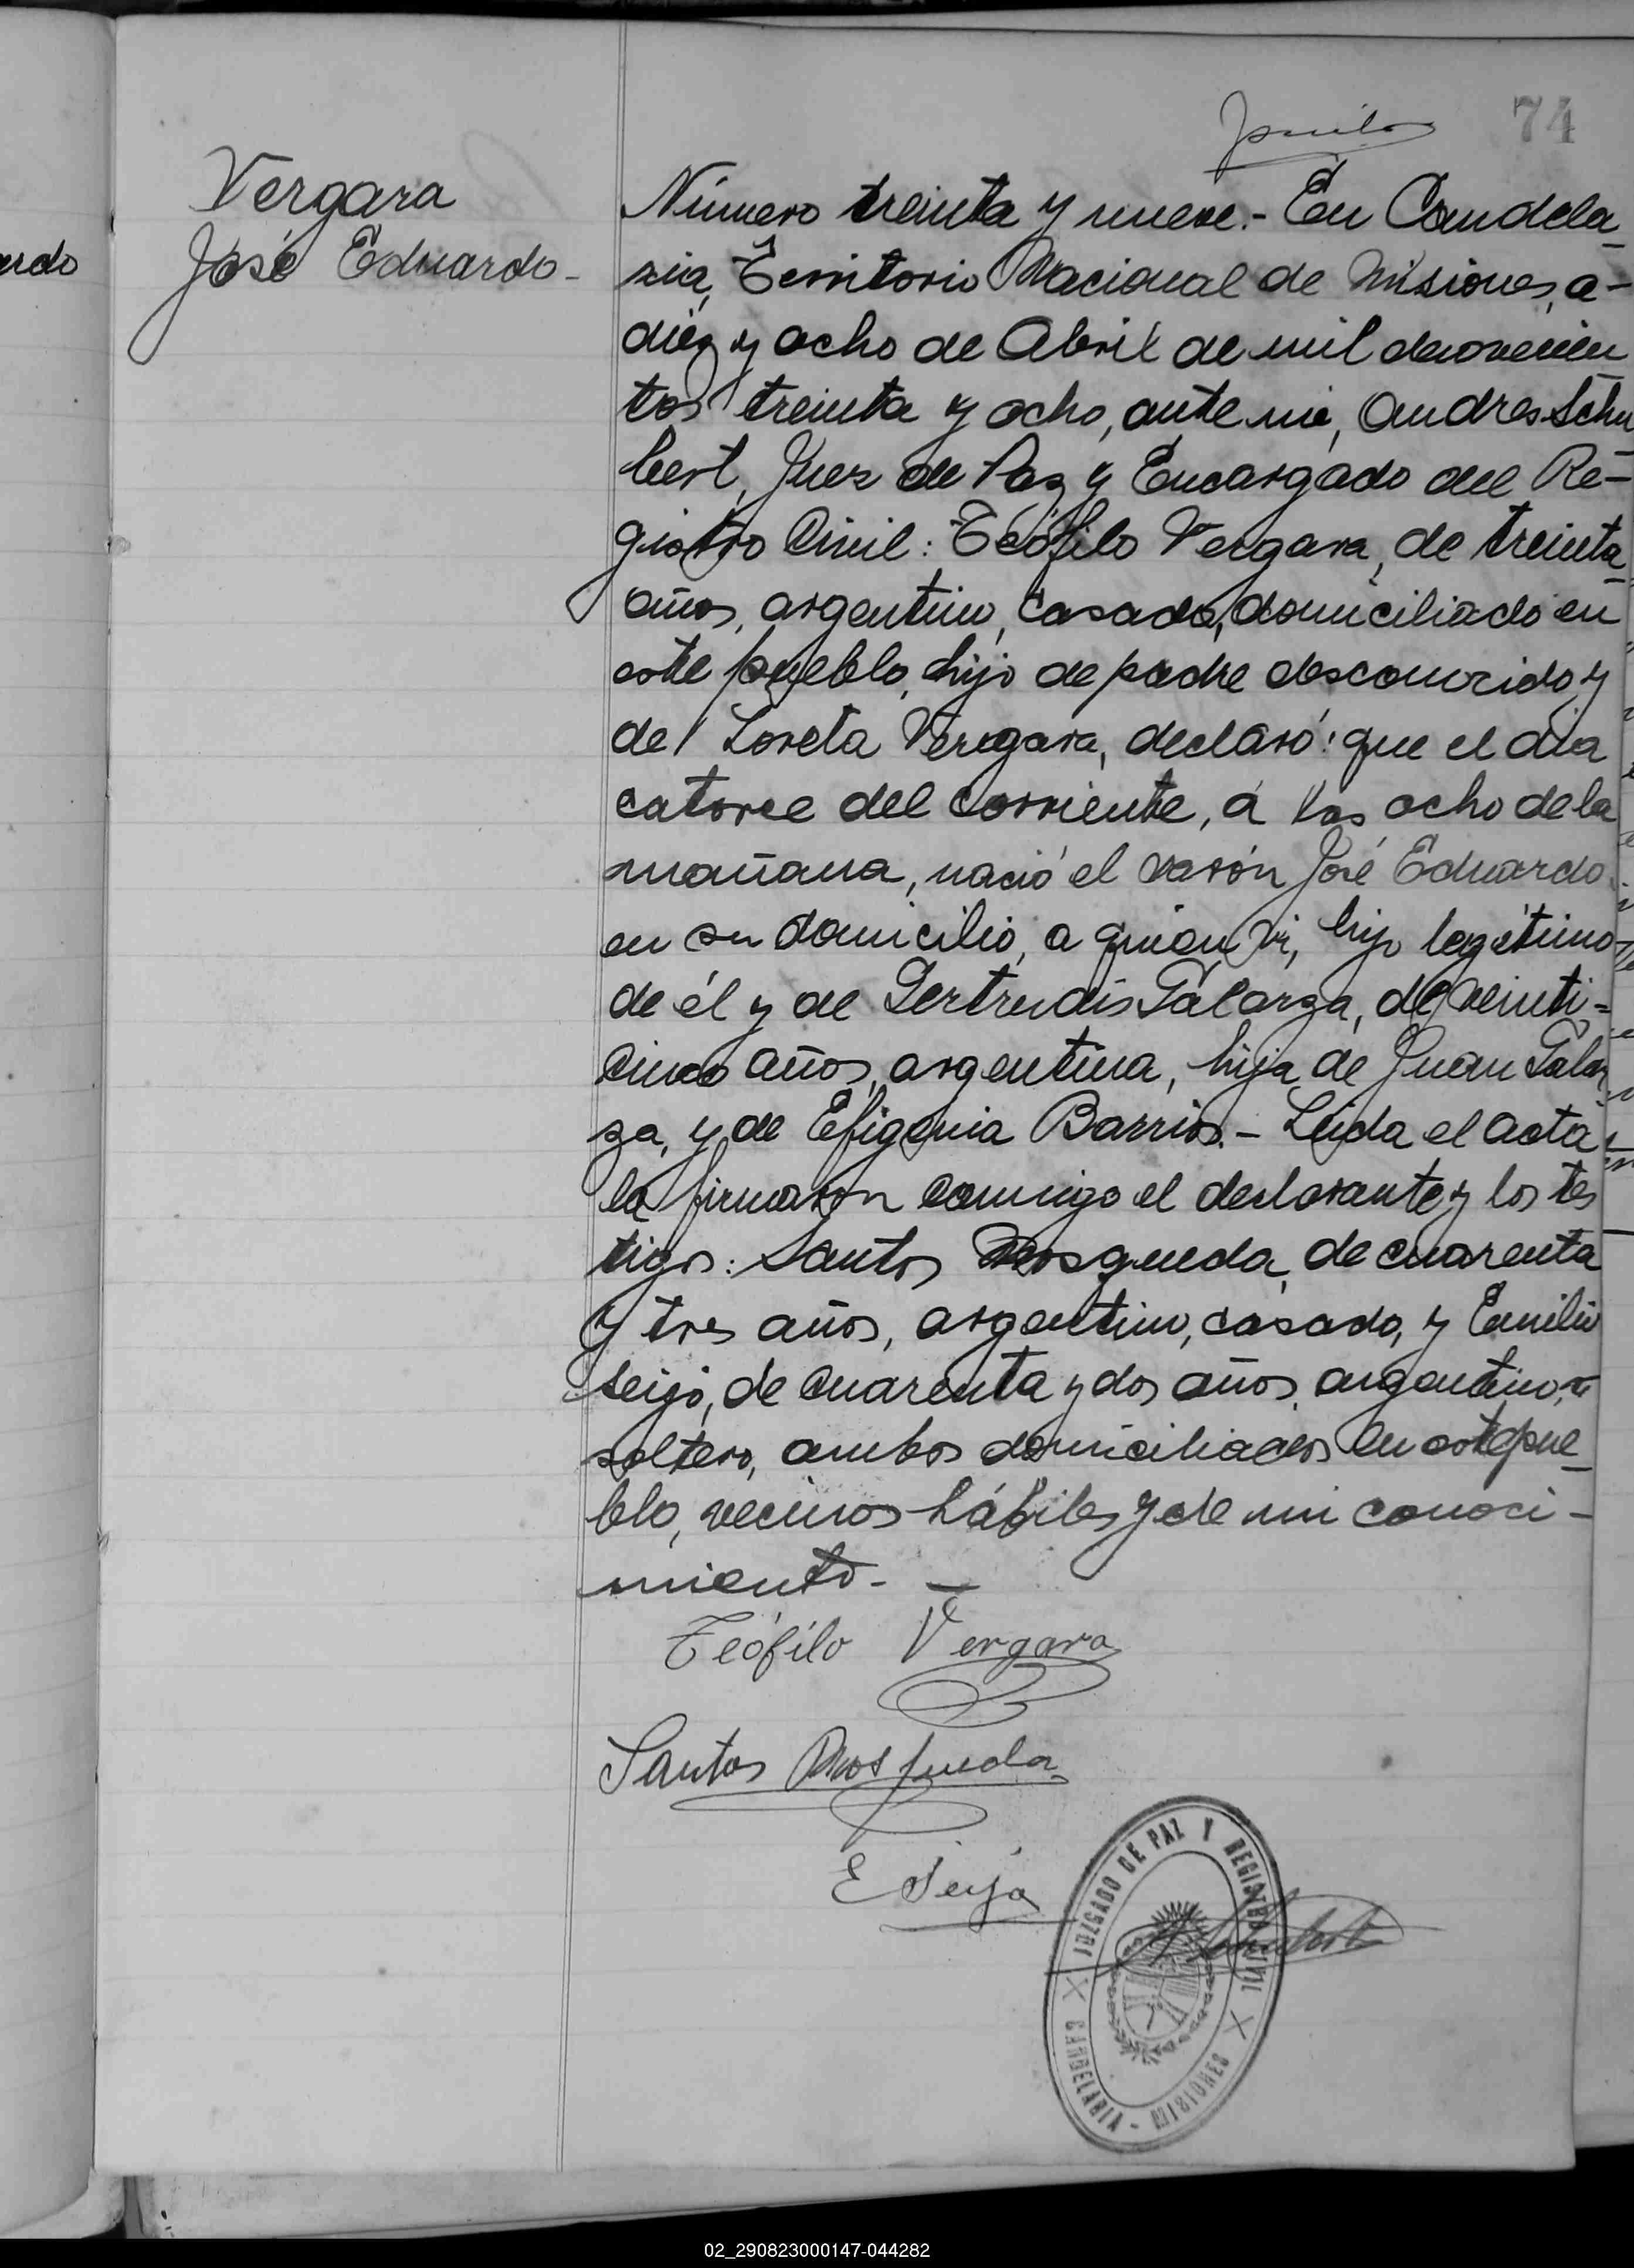 74
Vergara
José Eduardo-
ardo
Número treinta y nueve.- En Candela-
ria, Territorio Nacional de Misiones, a-
diez y ocho de Abril de mil novecien
tos treinta y ocho, ante mi, Andres Schu
bert, Juez de Paz y Encargado del Re-
gistro Civil: Teófilo Vergara, de treinta
años, argentino, casado, domiciliado en
este pueblo, hijo de padre desconocido y
de Loreta Vergara, declaró: que el dia
catorce del corriente, á las ocho de la
mañana, nació el varón José Eduardo
en su domicilio, a quien vi, hijo legítimo
de él y de Gertrudis Galarza, de veinti-
cinco años, argentina, hija de Juan Galar
za, y de Efigenia Barrios.- Leida el acta
la firmaron conmigo el declarante y los tes
tigos: Santos Mosqueda, de cuarenta
y tres años, argentino, casado, y Emilio
Seijo, de cuarenta y dos años, argentino,
soltero, ambos domiciliados en este pue-
blo, vecinos hábiles y de mi conoci-
miento.-
Teófilo Vergara
Santos Mosqueda
E Seijo
JUZGADO DE PAZ Y REGISTRO CIVIL
CANDELARIA - MISIONES
02_290823000147-044282